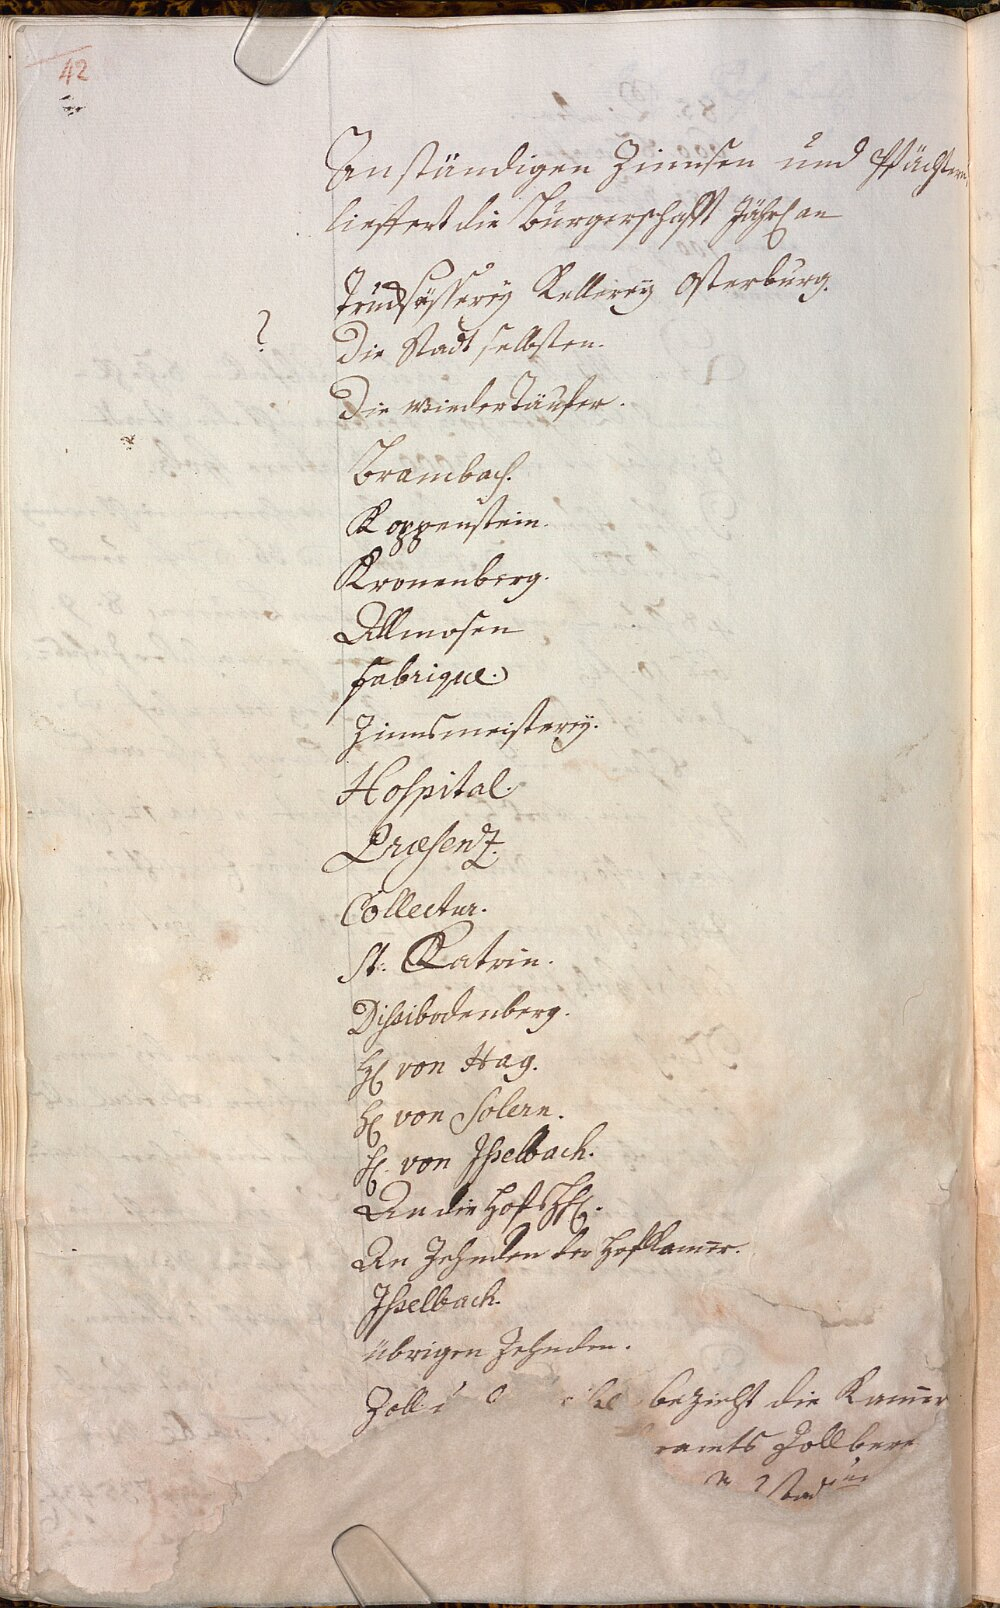 42
An ständigen Zinnsen und Pfächten
lieffert die Bürgerschafft Jährl an
Trucksässerey Kellerey Osterburg.
?
Die Stadt selbsten.
Die wiederTäufer.
Brambach.
Koppenstein.
Kronenberg.
Allmosen
Fabrique.
Zinnsmeisterey.
Hospital.
Præsentz.
Collectur.
St. Catrin.
Dissibodenberg.
H. von Hag.
H. von Solern.
H. von Ißelbach.
An die Hoff
An Zehnden der Hofkamer.
Ißelbach.
übrigen Zehnden.
Zoll bezieht die Kamer
ramts Zollbere
Stad